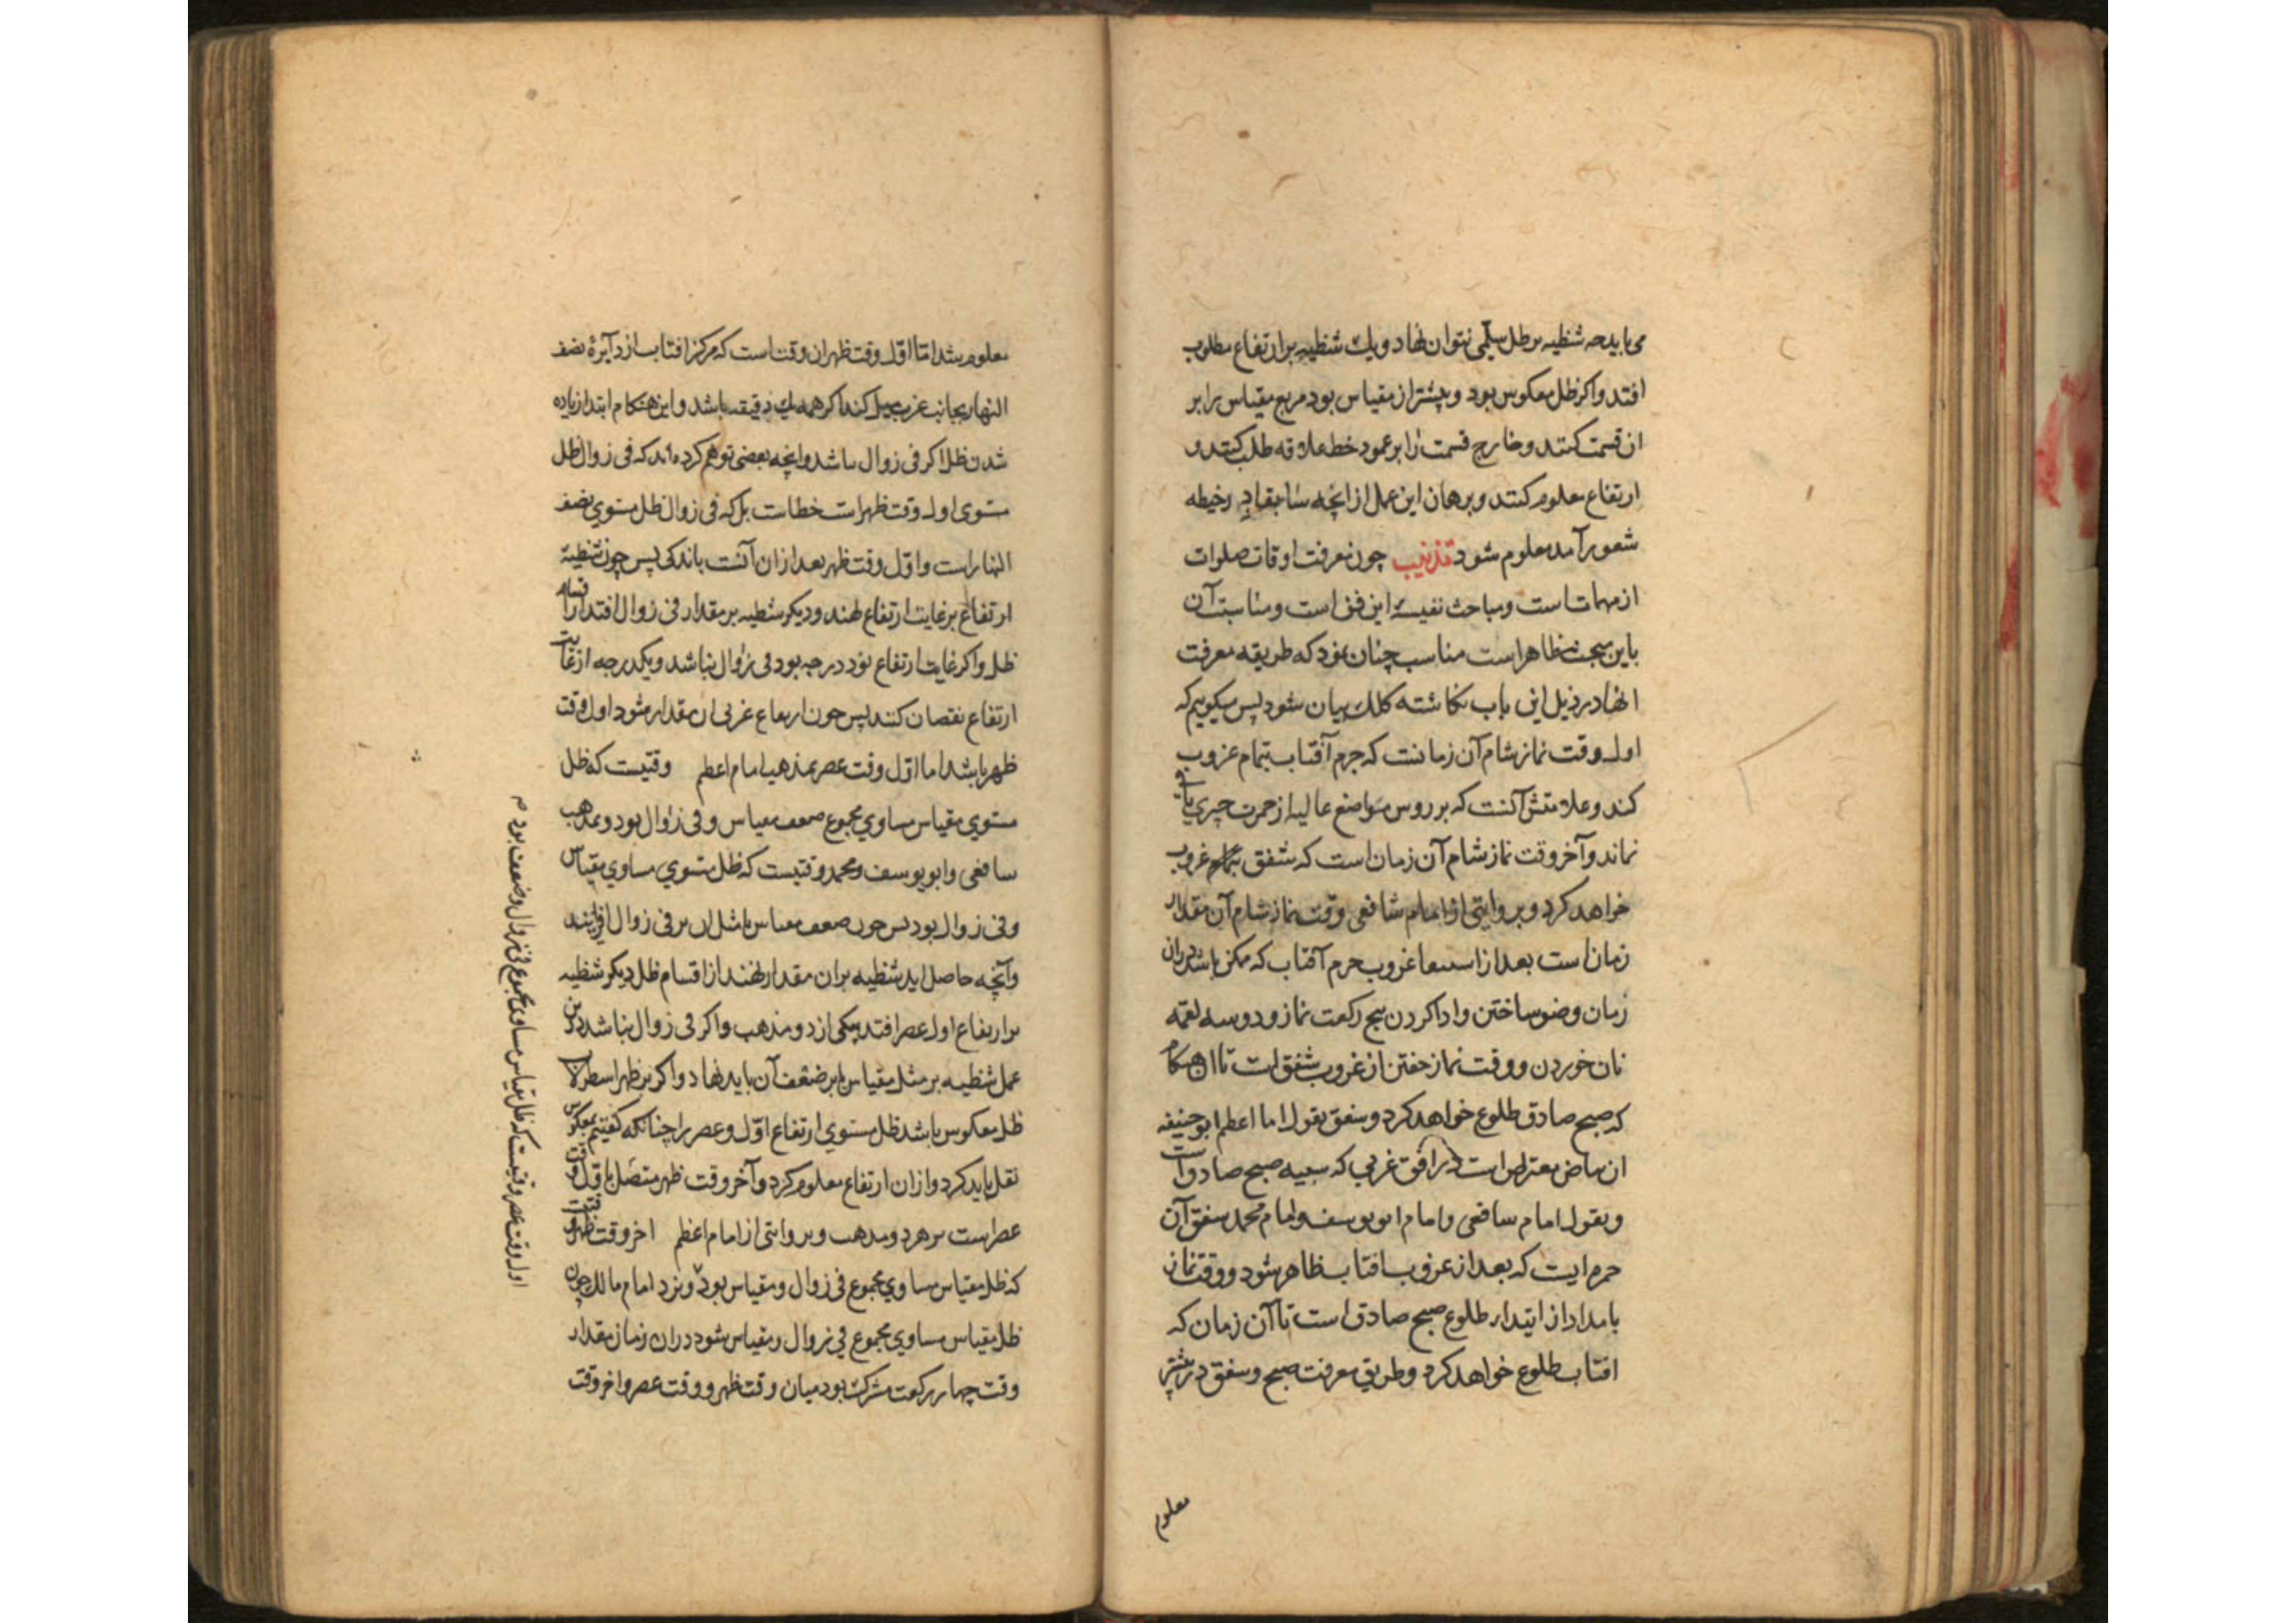 می‌باید چه شظیه بر ظل سلمی نتوان نهاد و یک شظیه بر ارتفاع مطلوب
افتد و اکر ظل معکوس بود و بیشتر از مقیاس بود مربع مقیاس را بر
ان قسمت کنند و خارج قسمت را بر عمود خط علاقه طلب کنند و
ارتفاع معلوم کنند و برهان این عمل از انچه سابقا در حیطه
شعور آمد معلوم شود تذنیب چون معرفت اوقات صلوات
از مهمات است و مباحث نفیسه این فن است و مناسبت آن
باین مبحث ظاهر است مناسب چنان نمود که طریقه معرفت
انها در ذیل این باب نکاشته کلک بیان شود پس میکوییم که
اول وقت نماز شام آن زمانست که جرم آفتاب بتمام غروب
کند و علامتش آنست که بر روس مواضع عالیه از حمرت چیزی باقی
نماند و آخر وقت نماز شام آن زمان است که شفق بتمام غروب
خواهد کرد و بروایتی از امام شافعی وقت نماز شام آن مقدار
زمان است بعد از غروب جرم آفتاب که ممکن باشد در ان
زمان وضو ساختن و ادا کردن پنج رکعت نماز و دو سه لقمه
نان خوردن و وقت نماز خفتن از غروب شفق است تا ان هنکام
که صبح صادق طلوع خواهد کرد و شفق بقول امام اعظم ابو حنیفه
ان بیاض معترض است در افق غربی که شبیه صبح صادق است
و بقول امام شافعی و امام ابو یوسف و امام محمد شفق آن
حمره ایست که بعد از غروب افتاب ظاهر شود و وقت نماز
بامداد از ابتدا طلوع صبح صادق است تا آن زمان که
افتاب طلوع خواهد کرد و طریق معرفت صبح و شفق در پیشتر
معلوم
معلوم شد اما اول وقت ظهر ان وقت است که مرکز افتاب از دایرهٔ نصف
النهار بجانب غرب میل کند اکر همه یک دقیقه باشد و این هنکام ابتدا زیاده
شدن ظل اکر فی زوال باشد و انچه بعضی توهم کرده‌اند که فی زوال ظل
مستوی اول وقت ظهر است خطاست بلکه فی زوال ظل مستوی نصف
النهار است و اول وقت ظهر بعد از ان آنست باندکی پس چون شظیه
ارتفاع بر غایت ارتفاع نهند و دیکر شظیه بر مقدار فی زوال افتد از اقسام
ظل و اکر غایت ارتفاع نود درجه بود فی زوال نباشد و یکدرجه از غایت
ارتفاع نقصان کنند پس چون ارتفاع غربی ان مقدار شود اول وقت
ظهر باشد اما اول وقت عصر بمذهب امام اعظم وقتیست که ظل
مستوی مقیاس مساوی مجموع ضعف مقیاس و فی زوال بود و بمذهب
شافعی و ابو یوسف و محمد وقتیست که ظل مستوی مساوی مقیاس
و فی زوال بود پس چون ضعف مقیاس یا مثل ان بر فی زوال افزایند
و آنچه حاصل اید شظیه بران مقدار نهند از اقسام ظل دیکر شظیه
بر ارتفاع اول عصر افتد بیکی از دو مذهب و اکر فی زوال نباشد درین
عمل شظیه بر مثل مقیاس یا بر ضعف آن باید نهاد و اکر بر ظهر اسطرلاب
ظل معکوس باشد ظل مستوی ارتفاع اول عصر را چنانکه کفتیم بمعکوس
نقل باید کرد و از ان ارتفاع معلوم کرد و آخر وقت ظهر متصل باول وقت
عصر است بر هر دو مذهب و بروایتی از امام اعظم اخر وقت ظهر وقتیست
که ظل مقیاس مساوی مجموع فی زوال و مقیاس بود و نزد امام مالک چون
ظل مقیاس مساوی مجموع فی زوال و مقیاس شود دران زمان مقدار
وقت چهار رکعت مشترک بود میان وقت ظهر و وقت عصر و اخر وقت
اول وقت عصر وقتیست که ظل مقیاس مساوی مجموع فی زوال و ضعف بود م